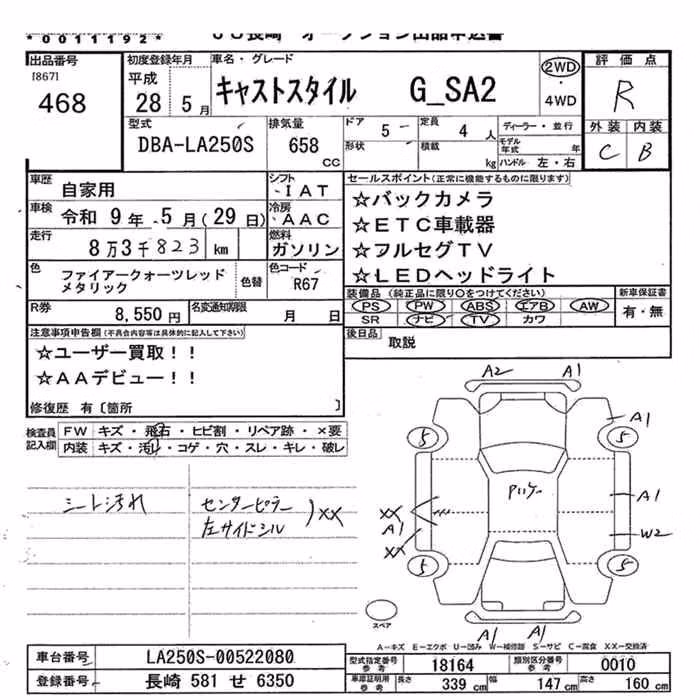 *0011192*
ＪＵ長崎 オークション出品申込書
出品番号
[867]
468
初度登録年月
平成
28 5月
車名・グレード
キャストスタイル G_SA2
2WD
・
4WD
評価点
R
外装 内装
C B
型式
DBA-LA250S
排気量
658
CC
ドア 5
定員 4 人
形状
積載 kg
ディーラー・並行
モデル年式 年
ハンドル 左・右
車歴
自家用
シフト
IAT
車検
令和 9年 5月(29日)
冷房
AAC
走行
8万3千823 km
燃料
ガソリン
色
ファイアークォーツレッド
メタリック
色替
色コード
R67
R券
8,550円
名変通知期限
月 日
セールスポイント(正常に機能するものに限ります)
☆バックカメラ
☆ETC車載器
☆フルセグTV
☆LEDヘッドライト
装備品(純正品に限り○をつけてください)
PS PW ABS エアB AW
SR ナビ TV カワ
新車保証書
有・無
後日品
取説
注意事項申告欄(不具合内容等は具体的に記入して下さい)
☆ユーザー買取！！
☆AAデビュー！！
修復歴 有〔箇所 〕
検査員
記入欄
FW キズ・飛石・ヒビ割・リペア跡・×要
内装 キズ・汚れ・コゲ・穴・スレ・キレ・破レ
シート汚れ
センターピラー
左サイドシル
)XX
A2 A1
A1
5 5
XX
A1
XX
A1
W2
5 5
A1 A1
スペア
A−キズ E−エクボ U−凹み W−補修跡 S−サビ C−腐食 XX−交換済
車台番号 LA250S-00522080
登録番号 長崎 581 せ 6350
型式指定番号
参考
18164
類別区分番号
参考
0010
車庫証明用
参考
長さ 339 cm 幅 147 cm 高さ 160 cm